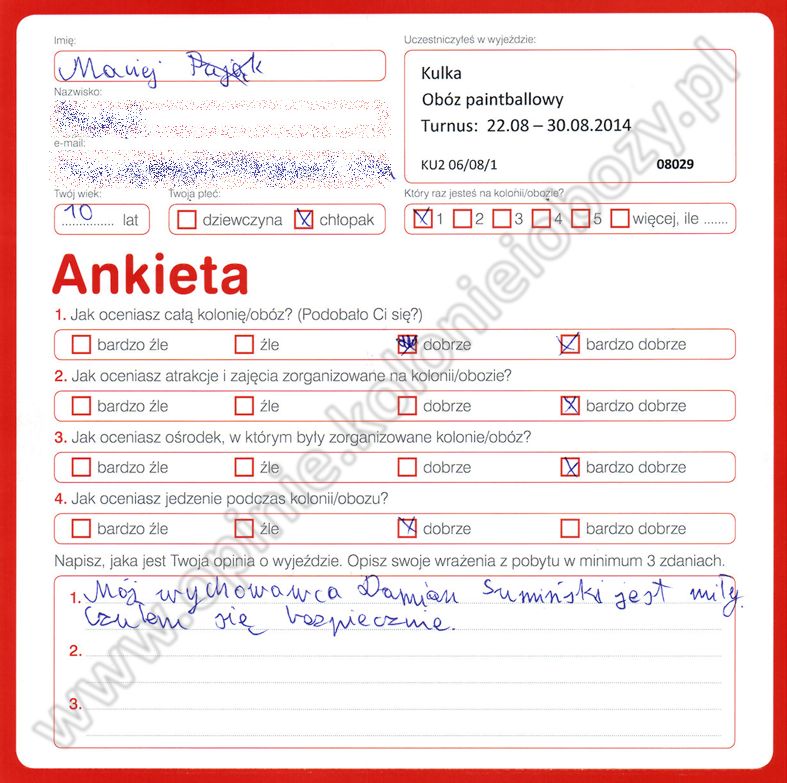 Imię:
Maciej Pająk
Nazwisko:
e-mail:
Twój wiek:
10 lat
Twoja płeć:
dziewczyna chłopak
Uczestniczyłeś w wyjeździe:
Kulka
Obóz paintballowy
Turnus: 22.08 – 30.08.2014
KU2 06/08/1 08029
Który raz jesteś na kolonii/obozie?
1 2 3 4 5 więcej, ile .......
Ankieta
1. Jak oceniasz całą kolonię/obóz? (Podobało Ci się?)
bardzo źle źle dobrze bardzo dobrze
2. Jak oceniasz atrakcje i zajęcia zorganizowane na kolonii/obozie?
bardzo źle źle dobrze bardzo dobrze
3. Jak oceniasz ośrodek, w którym były zorganizowane kolonie/obóz?
bardzo źle źle dobrze bardzo dobrze
4. Jak oceniasz jedzenie podczas kolonii/obozu?
bardzo źle źle dobrze bardzo dobrze
Napisz, jaka jest Twoja opinia o wyjeździe. Opisz swoje wrażenia z pobytu w minimum 3 zdaniach.
1. Mój wychowawca Damian Sumiński jest miły.
Czułem się bezpiecznie.
2.
3.
www.opinie.kolonieiobozy.pl